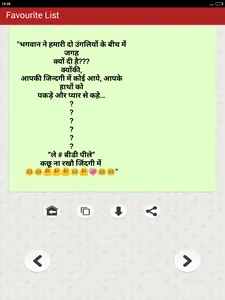 14:39
Favourite List
"भगवान ने हमारी दो उंगलियों के बीच में
जगह
क्यों दी है???
क्योंकी,
आपकी जिन्दगी में कोई आये, आपके
हाथों को
पकड़े और प्यार से कहे...
?
?
?
?
?
?
"ले # बीडी पीले"
कछू ना रखौ जिंदगी में
😊😊🤗🤗🤗😊🤗💗😊😊"